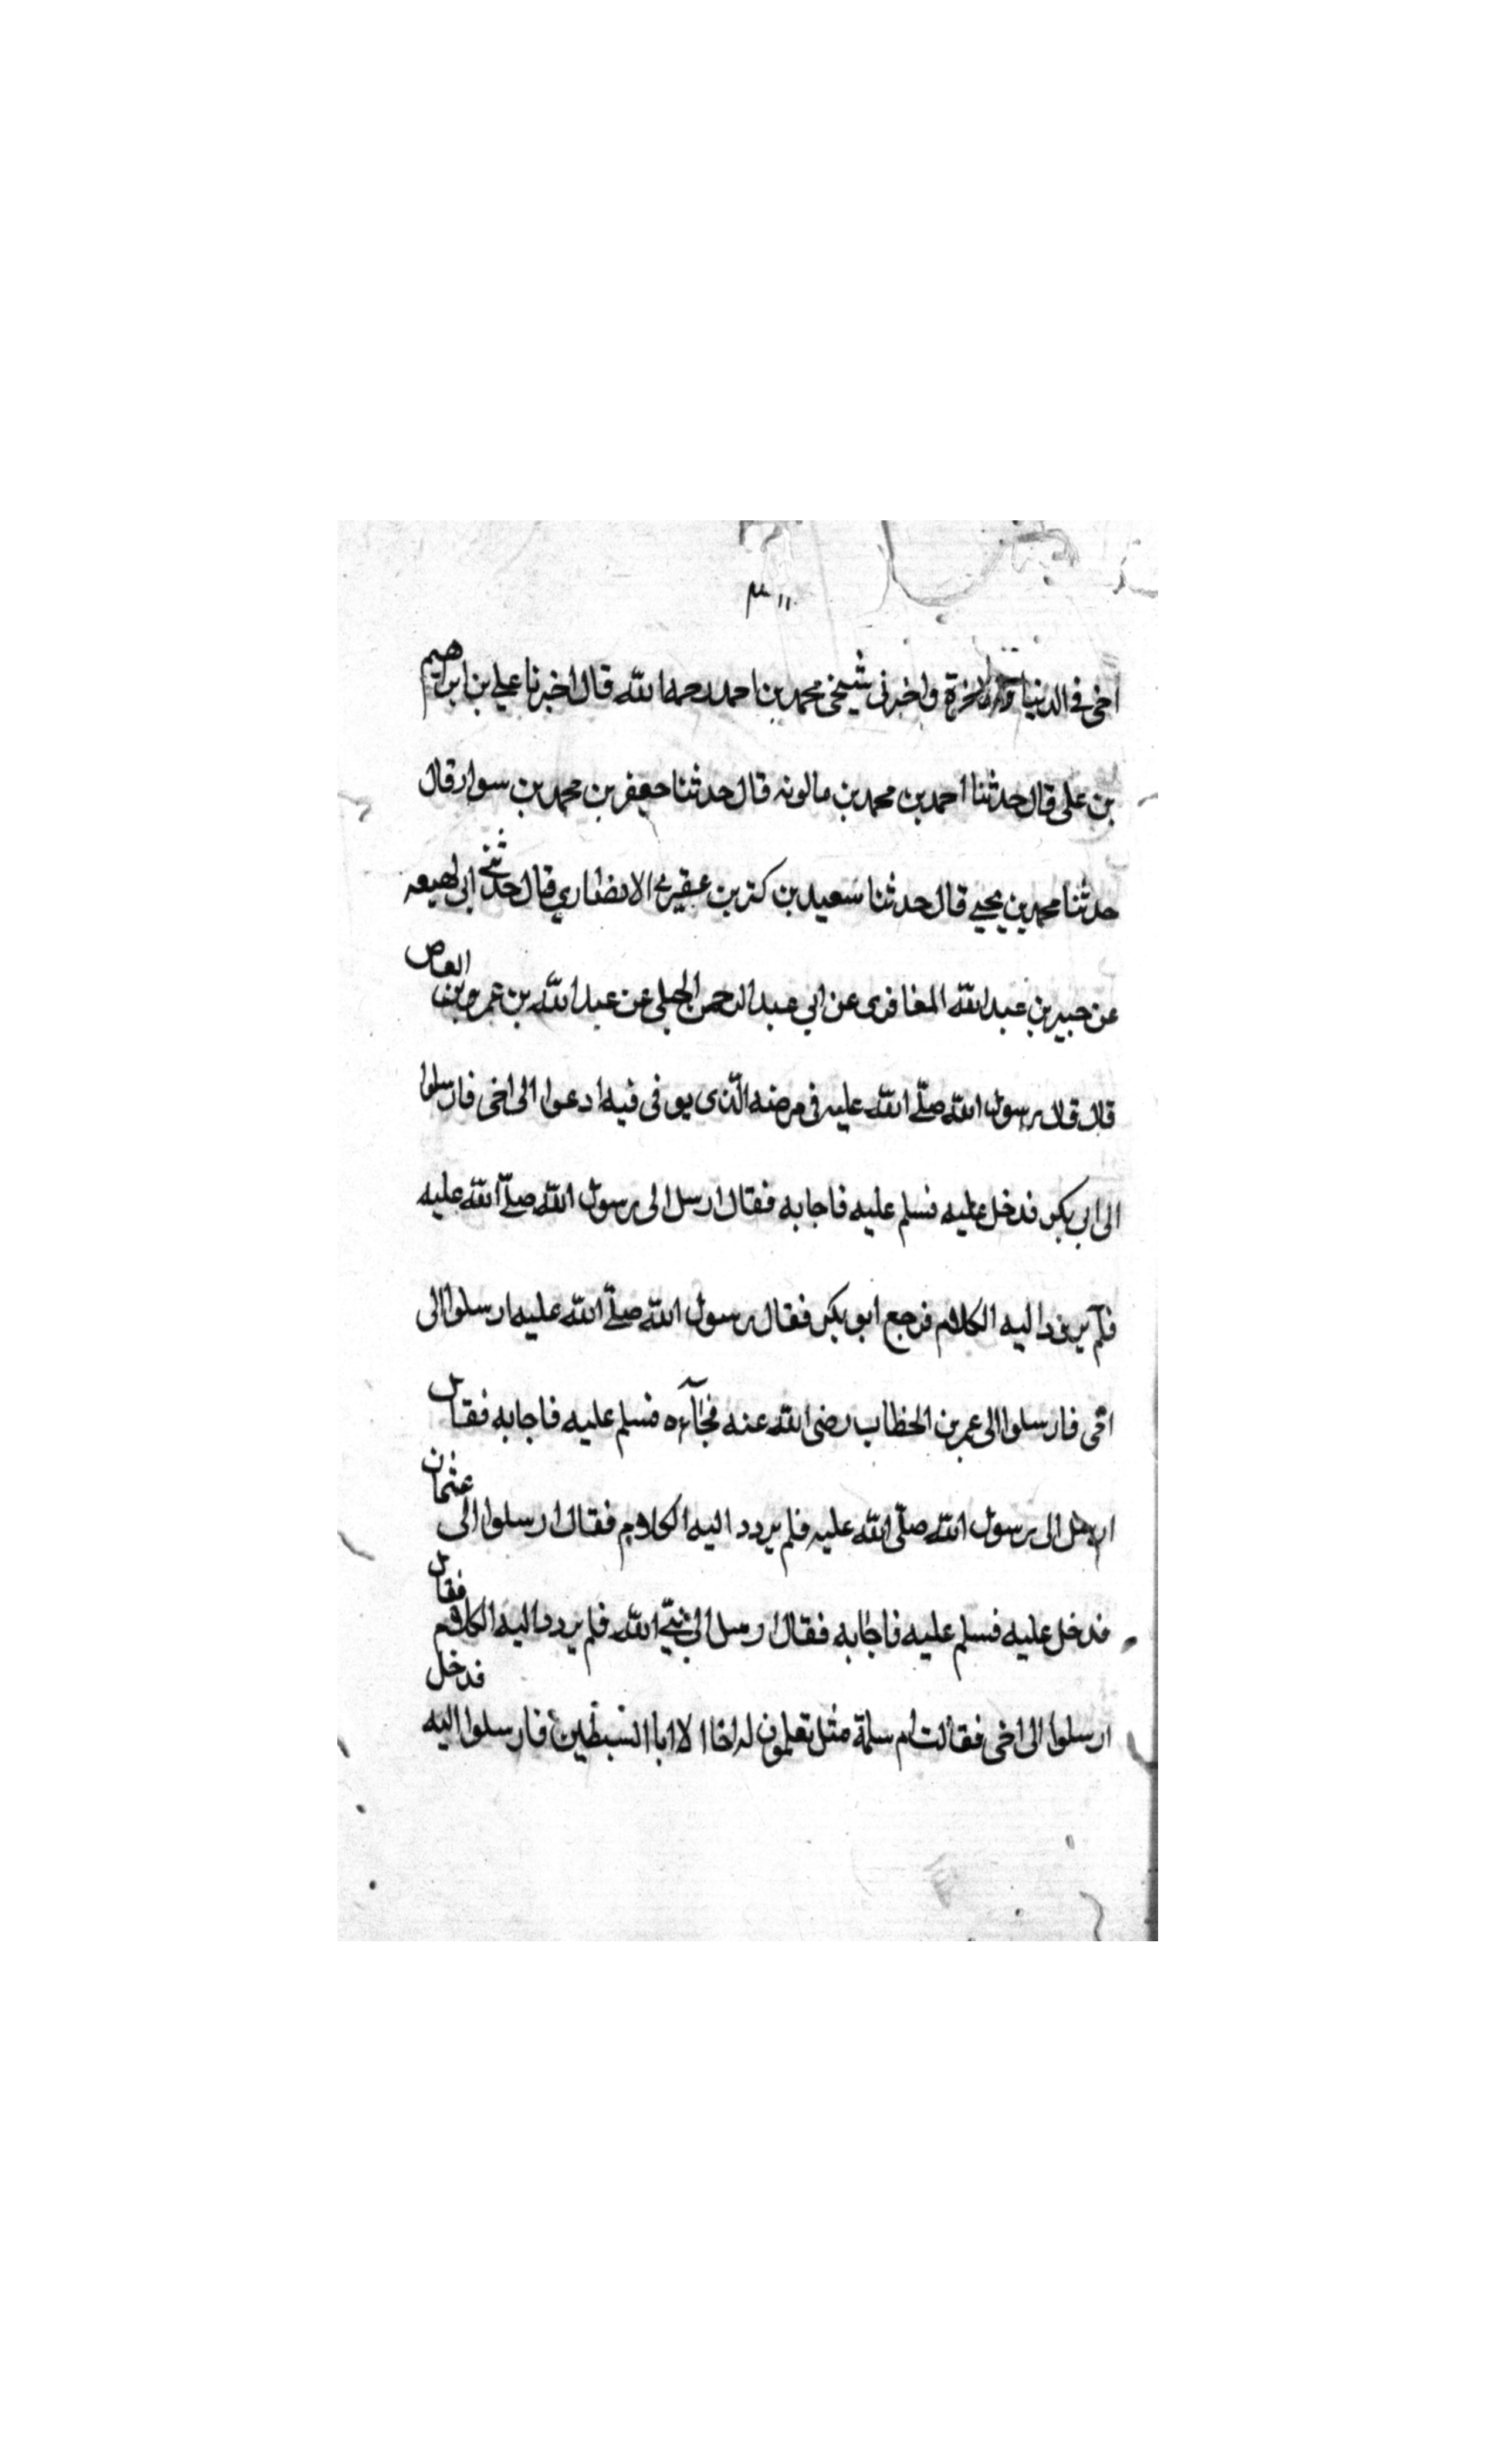 اخي في الدنيا والاخرة واخبرني شيخي محمد بن احمد رحمه الله قال اخبرنا علي بن ابراهيم
بن علي قال حدثنا احمد بن محمد بن مالونه قال حدثنا جعفر بن محمد بن سوار قال
حدثنا محمد بن يحيي قال حدثنا سعيد بن كثر بن عقير الانصاري قال حدثني ابي لهيعه
عن حبير بن عبد الله المغافري عن ابي عبد الرحمن الجبلي عن عبد الله بن عمرو بن العاص
قال قال رسول الله صلّى الله عليه في مرضه الّذي يوفى فيه ادعوا الى اخي فارسلوا
الى ابي بكر فدخل عليه فسلم عليه فاجابه فقال ارسل الى رسول الله صلّى الله عليه
فلم يردد اليه الكلام فرجع ابو بكر فقال رسول الله صلّى الله عليه ارسلوا الى
اخي فارسلوا الى عمر بن الخطاب رضى الله عنه فجآءه فسلم عليه فاجابه فقال
ارسل الى رسول الله صلّى الله عليه فلم يردد اليه الكلام فقال ارسلوا الى عثمان
فدخل عليه فسلم عليه فاجابه فقال ارسل الى نبيّ الله فلم يردد اليه الكلام فقال
ارسلوا الى اخي فقالت ام سلمة مثل تعلمون له اخا الا ابا السبطين فارسلوا اليه فدخل